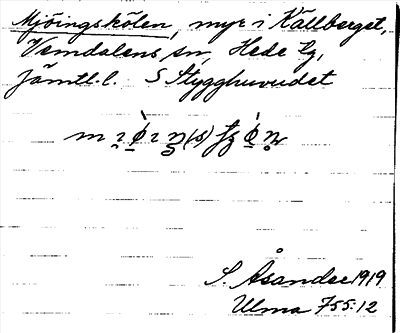 Mjöingskölen, myr i Källberget,
Vemdalens sn, Hede tg,
Jämtl. l. S Stygghuvudet
S. Åsander 1919
Ulma 755:12